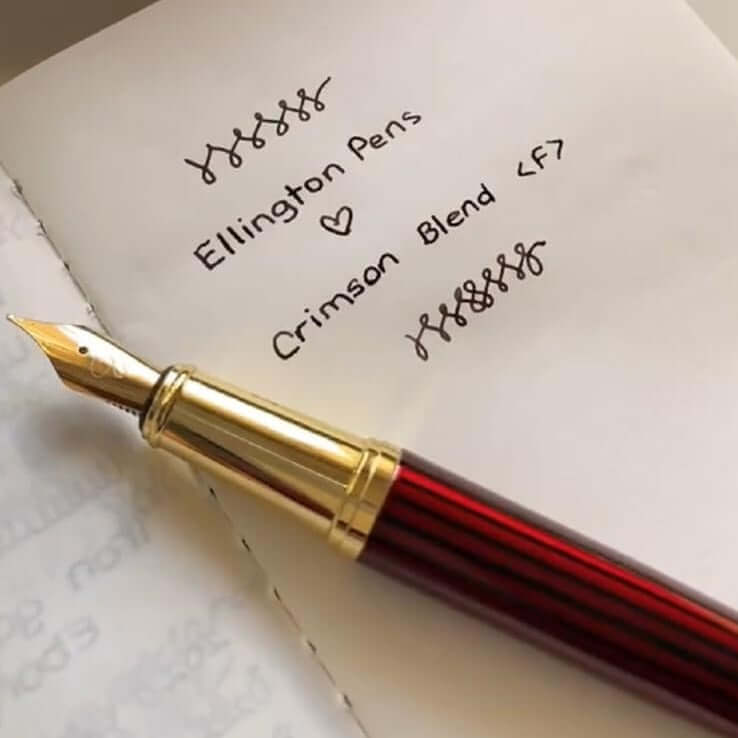 Ellington Pens
Crimson Blend <F>